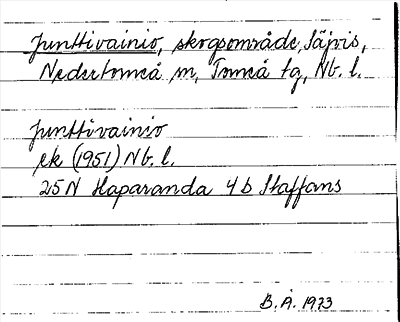 Junttivainio, skogsområde, Säjvis,
Nedertorneå sn, Torneå tg, Nb. l.
Junttivainio
ek (1951) Nb. l.
25N Haparanda 4b Staffans
B.Å. 1973